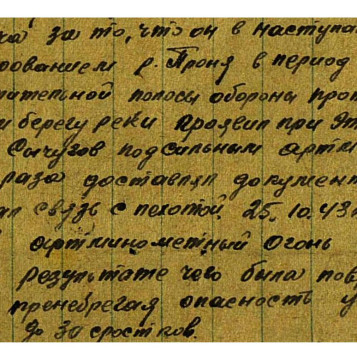 за то, что он в наступа
рованием р. Проня в период
пательной полосы обороны про
м берегу реки проявил при эт
Сычугов под сильным артм
раза доставлял документ
ал связь с пехотой 25.10.43
артминометный огонь
результате чего была пов
пренебрегая опасность у
до 30 сростков.